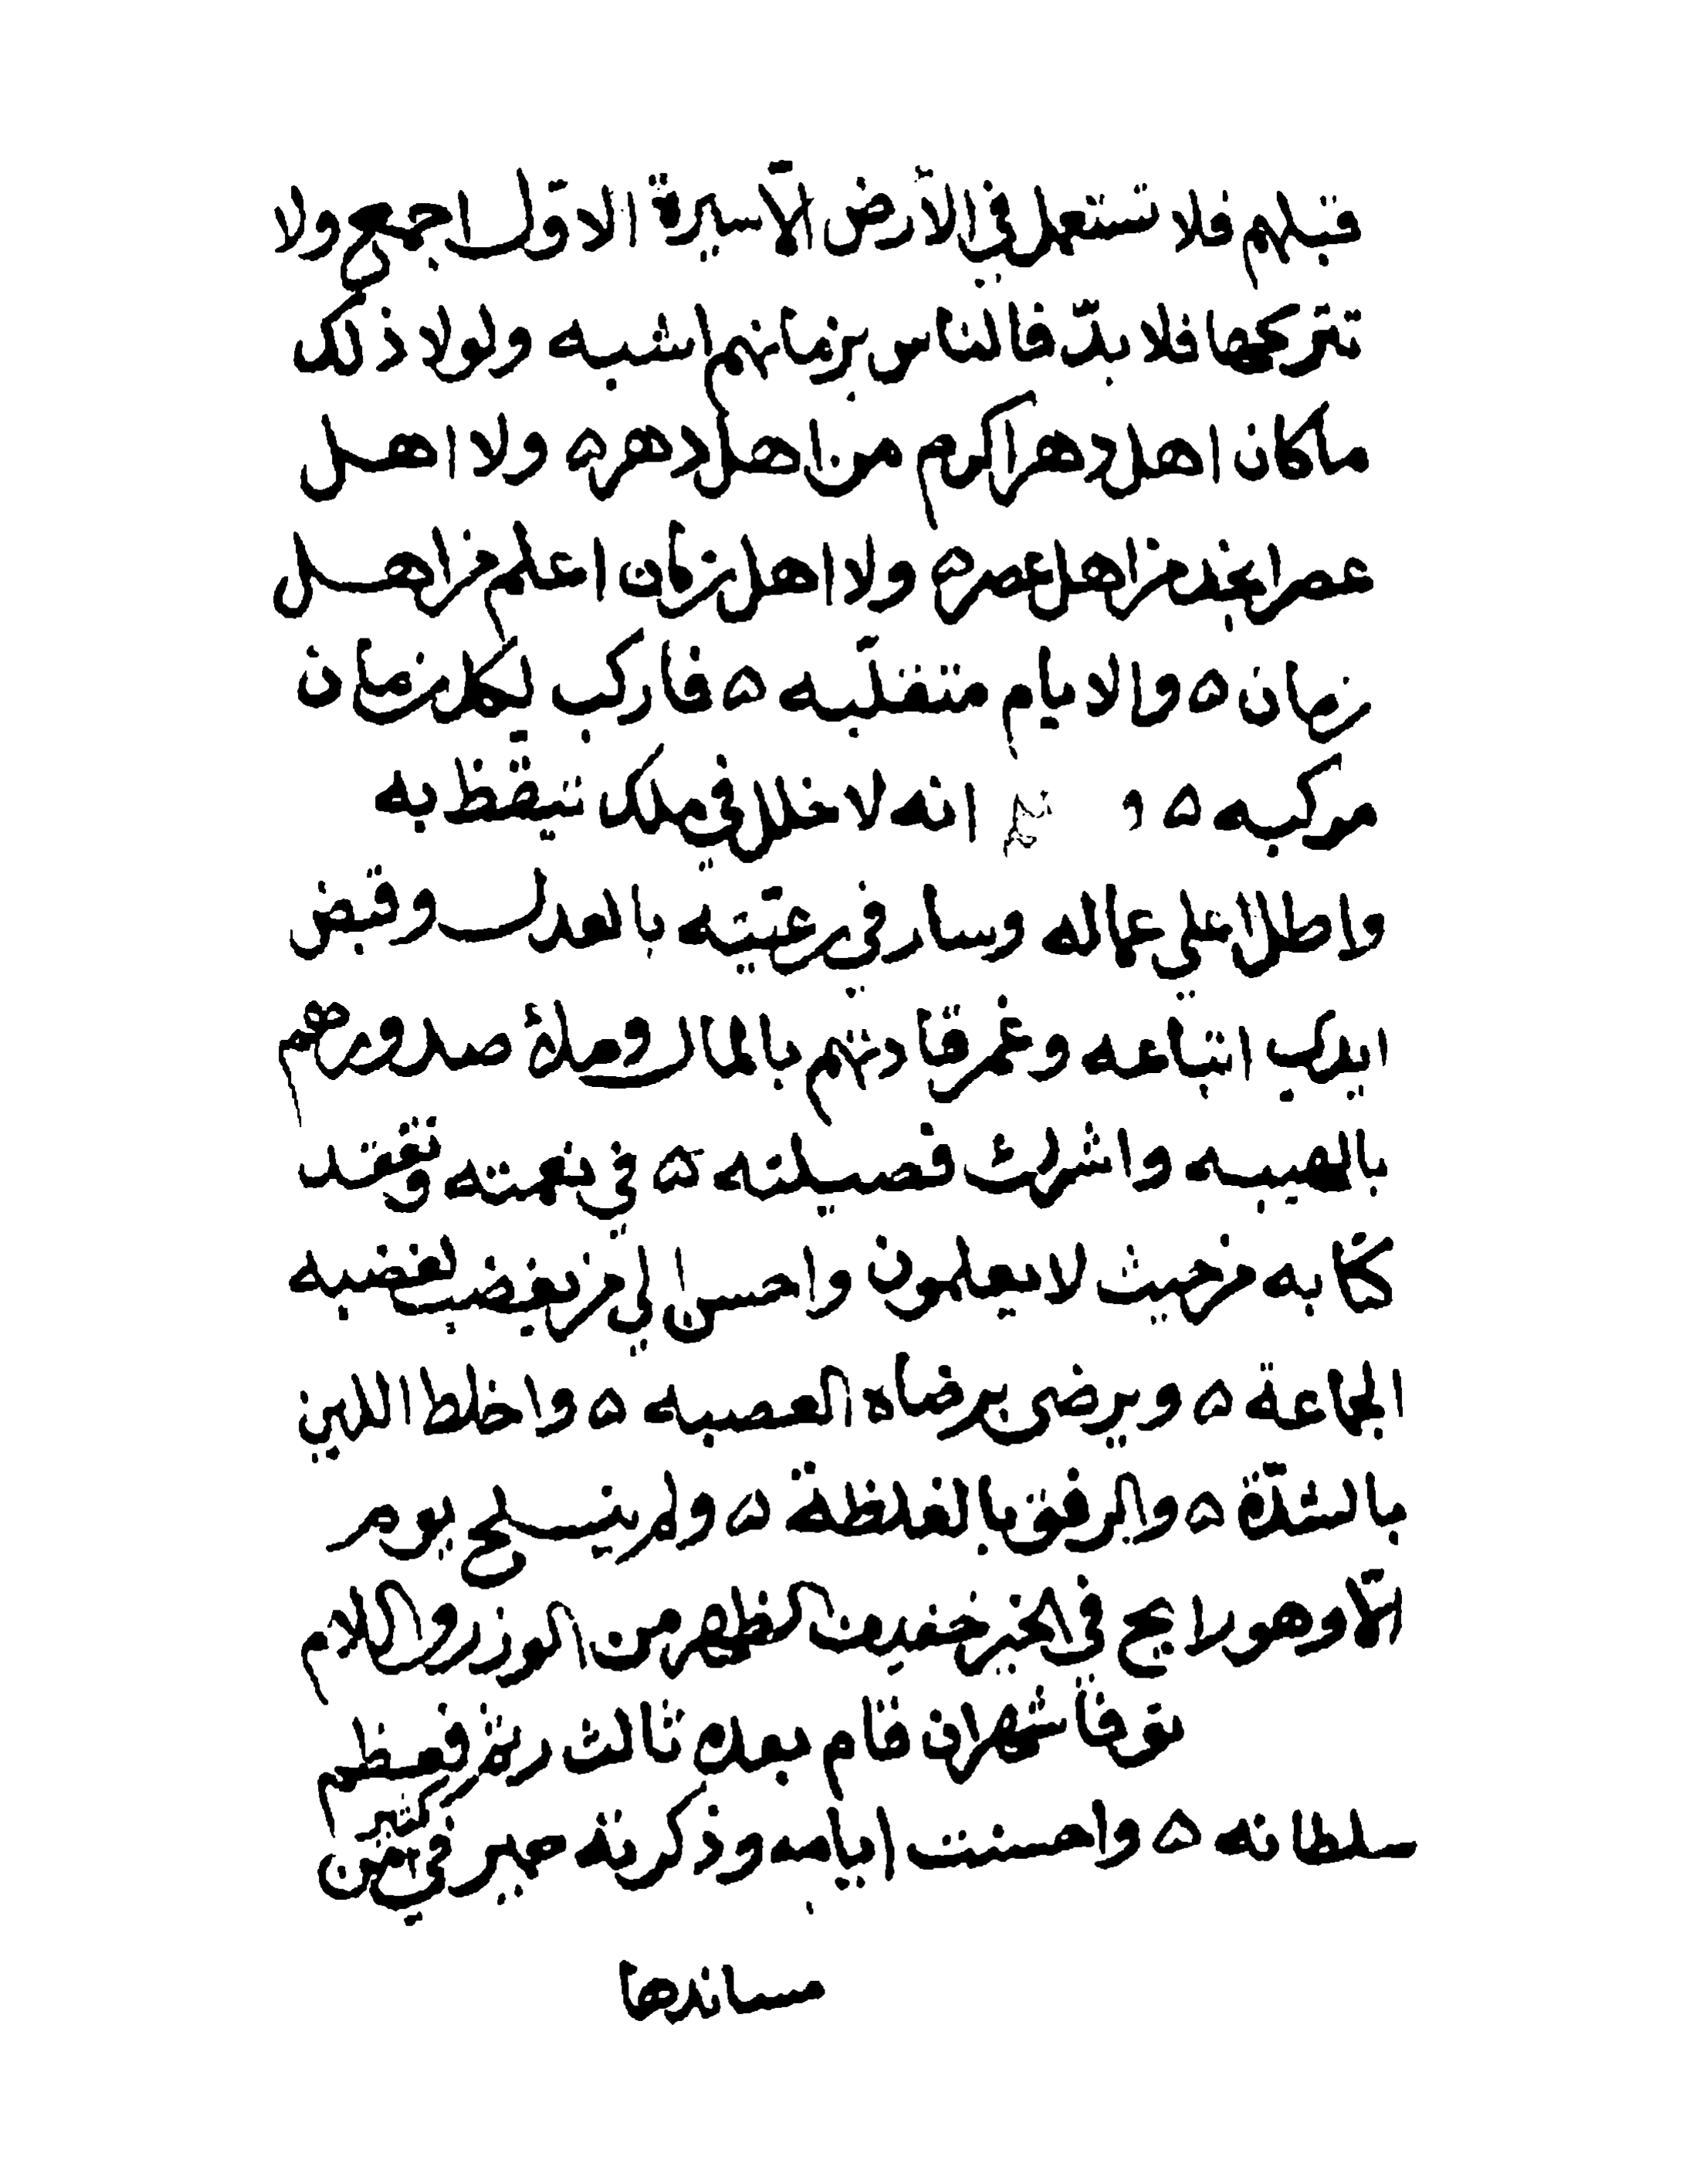 قبلهم فلا تستعمل في الأرض الّا سيرة الاوّل اجمع ولا
تتركها فلا بدّ فالناس بزمانهم اشبه ولولا ذلك
ماكان اهل دهر اكرم من اهل دهره ولا اهل
عصر انجد من اهل عصره ولا اهل زمان اعلم من اهل
زمان ۵ والايام متقلّبه ۵ فاركب لكل زمان
مركبه ۵ و انه لا خلل في ملك تيقّظ به
واطلاعلي عماله وسار في رعيّته بالعدل وقبض
ايدي اتباعه وغمر قادتهم بالمال وملأ صدورهم
بالهيبه واشرك فصيلته ۵ في نعمته وتفقد
كتّابه من حيث لا يعلمون واحسن الي من يغضب لغضبه
الجماعة ۵ ويرضى برضاه العصبه ۵ واخلط اللين
بالشدّة ۵ والرفق بالغلظة ۵ ولم ينسلخ يوم
الّا وهو رايح في الخير خفيف الظهر من الوزر والملام
توفا شهران قام بعده ثالث رثم فعظم
سلطانه ۵ واحسنت ايامه وذكرته حمير في كثير من
مساندها